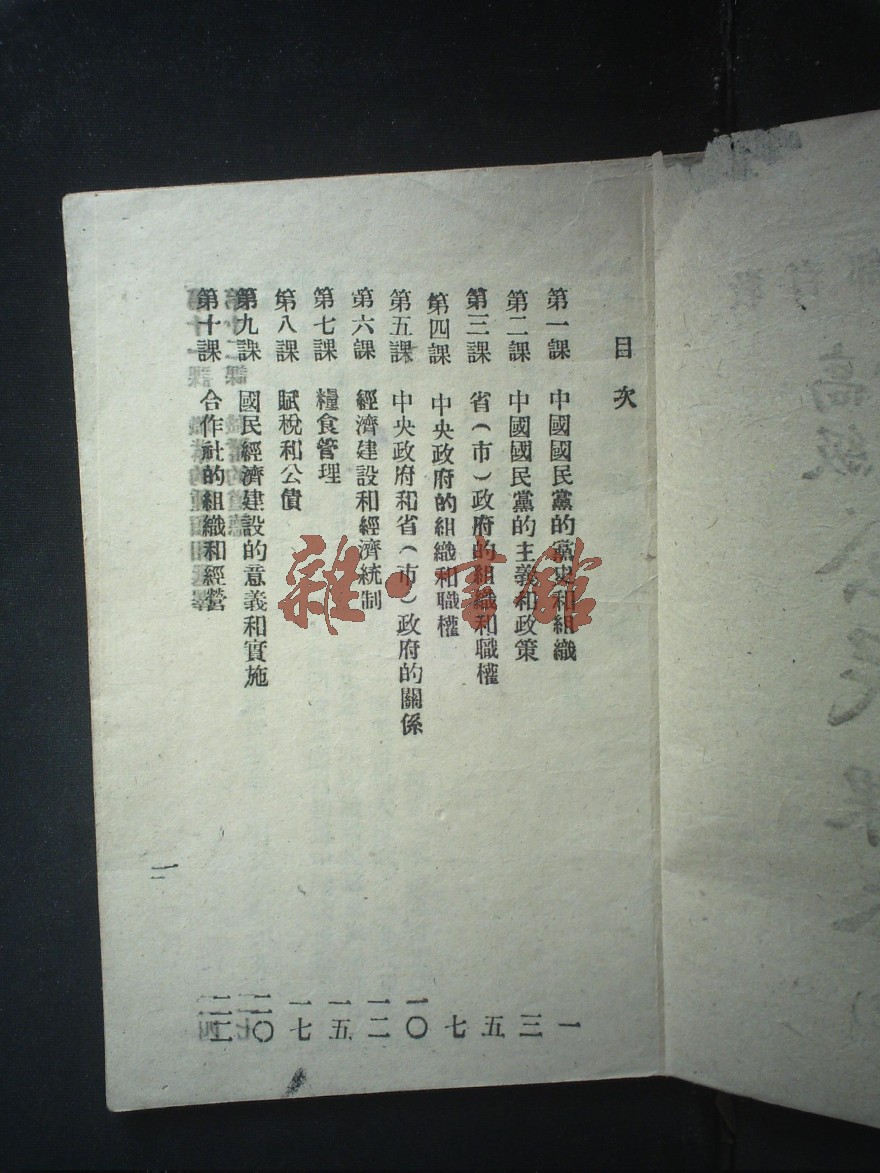 目次
第一課 中國國民黨的黨史和組織 一
第二課 中國國民黨的主義和政策 三
第三課 省（市）政府的組織和職權 五
第四課 中央政府的組織和職權 七
第五課 中央政府和省（市）政府的關係 一〇
第六課 經濟建設和經濟統制 一二
第七課 糧食管理 一五
第八課 賦稅和公債 一七
第九課 國民經濟建設的意義和實施 二〇
第十課 合作社的組織和經營 二二
一
雜·書館